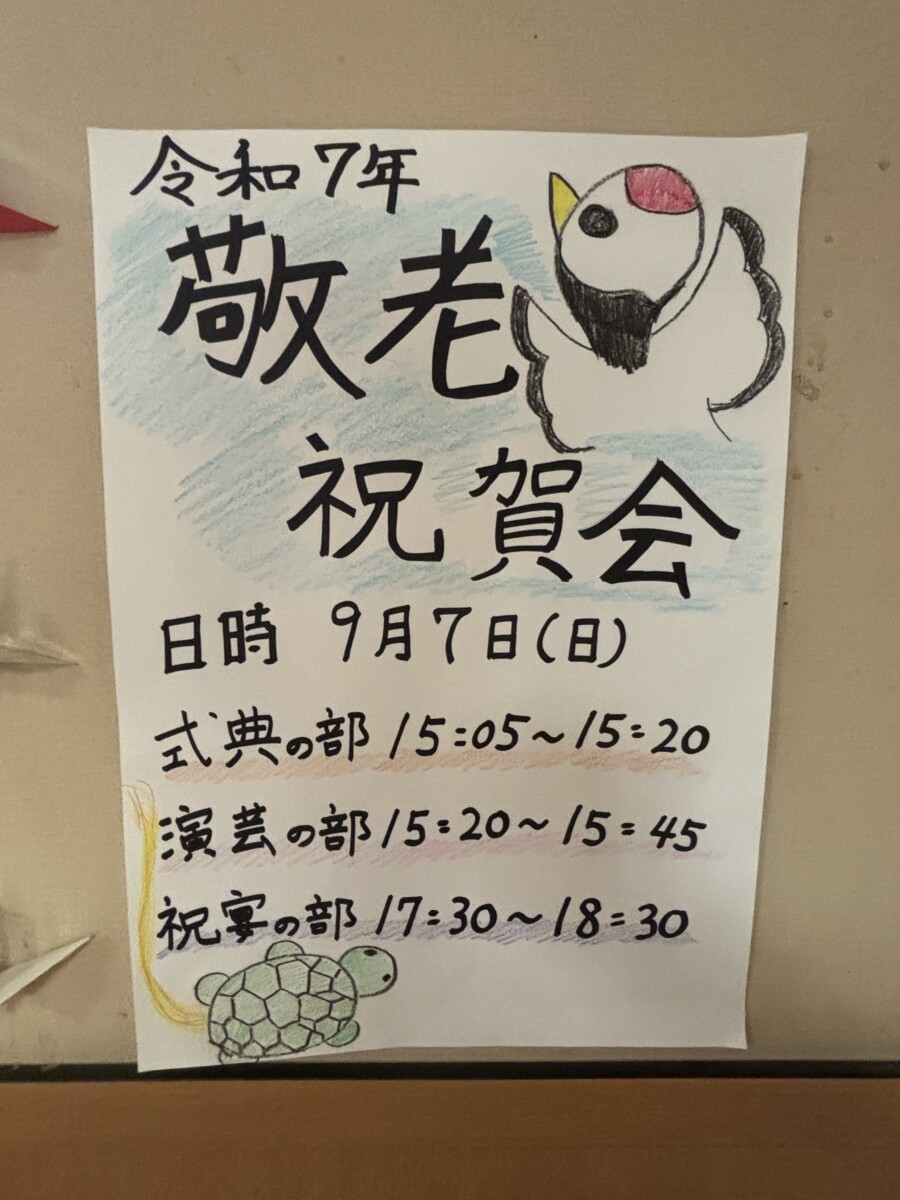 令和7年
敬老
祝賀会
日時 9月7日(日)
式典の部 15:05~15:20
演芸の部 15:20~15:45
祝宴の部 17:30~18:30